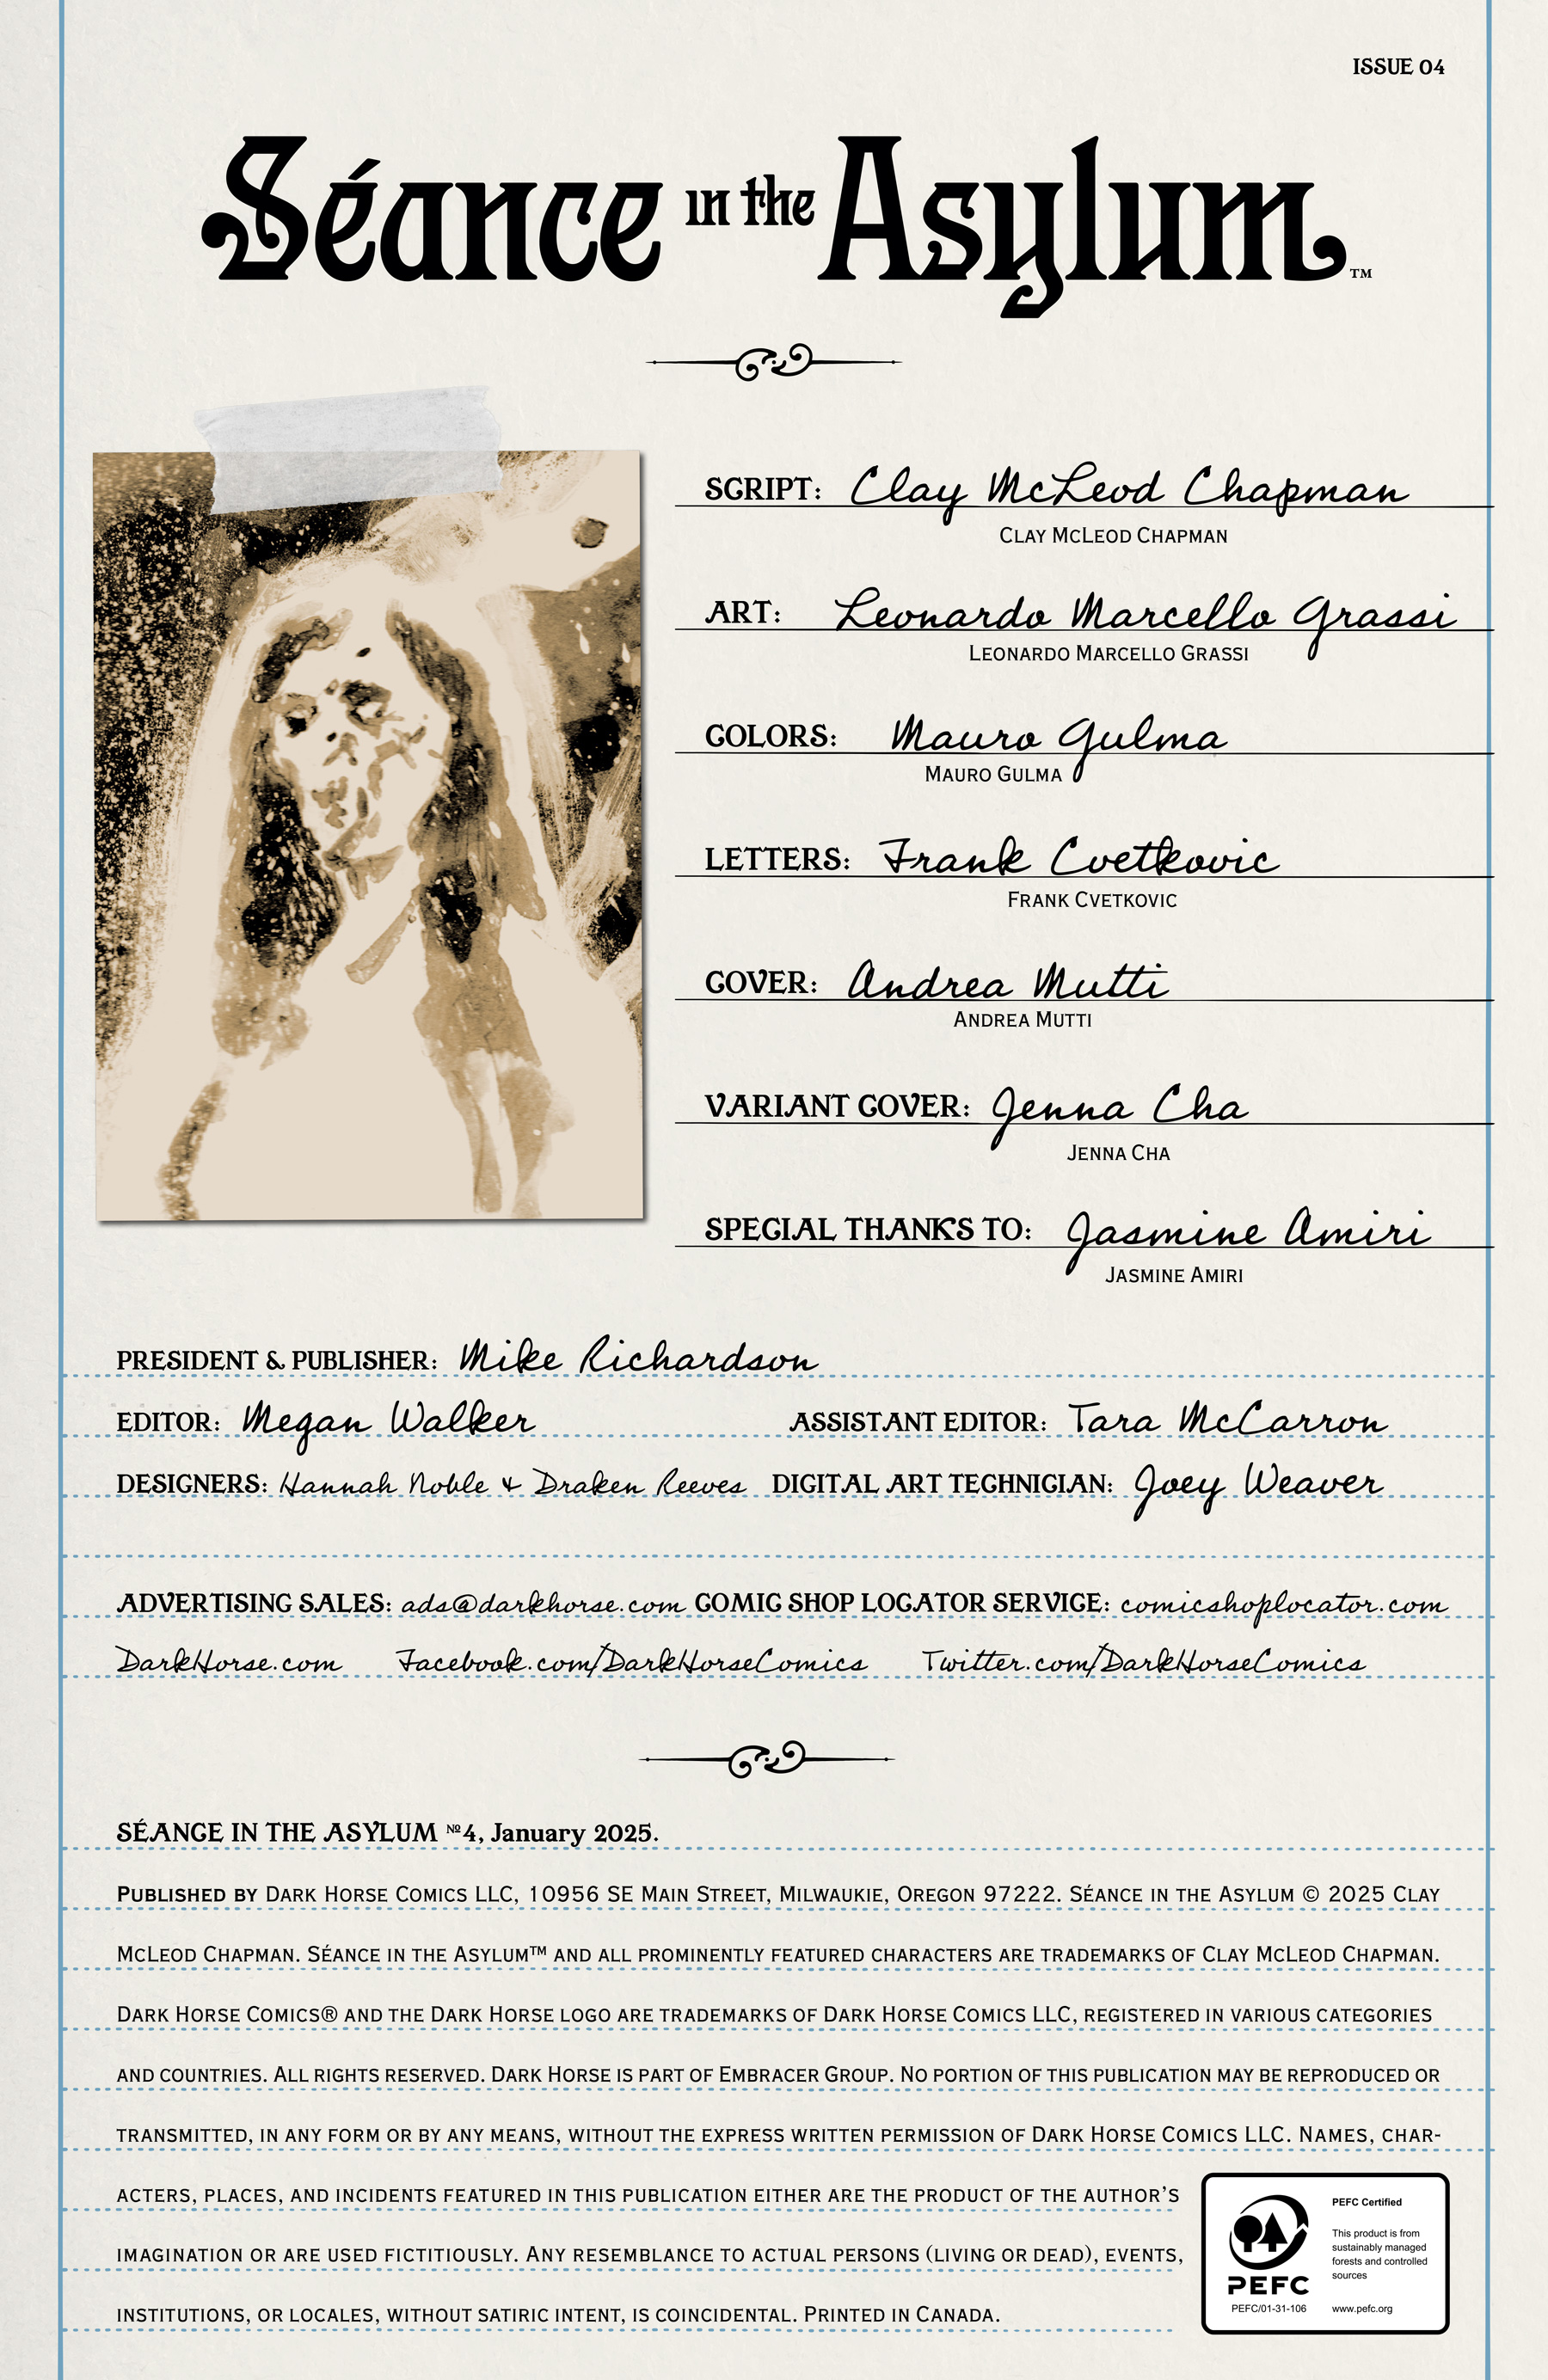 ISSUE 04
Séance in the Asylum™
SCRIPT: Clay McLeod Chapman
CLAY MCLEOD CHAPMAN
ART: Leonardo Marcello Grassi
LEONARDO MARCELLO GRASSI
COLORS: Mauro Gulma
MAURO GULMA
LETTERS: Frank Cvetkovic
FRANK CVETKOVIC
COVER: Andrea Mutti
ANDREA MUTTI
VARIANT COVER: Jenna Cha
JENNA CHA
SPECIAL THANKS TO: Jasmine Amiri
JASMINE AMIRI
PRESIDENT & PUBLISHER: Mike Richardson
EDITOR: Megan Walker ASSISTANT EDITOR: Tara McCarron
DESIGNERS: Hannah Noble & Draken Reeves DIGITAL ART TECHNICIAN: Joey Weaver
ADVERTISING SALES: ads@darkhorse.com COMIC SHOP LOCATOR SERVICE: comicshoplocator.com
DarkHorse.com Facebook.com/DarkHorseComics Twitter.com/DarkHorseComics
SÉANCE IN THE ASYLUM №4, January 2025.
PUBLISHED BY DARK HORSE COMICS LLC, 10956 SE MAIN STREET, MILWAUKIE, OREGON 97222. SÉANCE IN THE ASYLUM © 2025 CLAY
MCLEOD CHAPMAN. SÉANCE IN THE ASYLUM™ AND ALL PROMINENTLY FEATURED CHARACTERS ARE TRADEMARKS OF CLAY MCLEOD CHAPMAN.
DARK HORSE COMICS® AND THE DARK HORSE LOGO ARE TRADEMARKS OF DARK HORSE COMICS LLC, REGISTERED IN VARIOUS CATEGORIES
AND COUNTRIES. ALL RIGHTS RESERVED. DARK HORSE IS PART OF EMBRACER GROUP. NO PORTION OF THIS PUBLICATION MAY BE REPRODUCED OR
TRANSMITTED, IN ANY FORM OR BY ANY MEANS, WITHOUT THE EXPRESS WRITTEN PERMISSION OF DARK HORSE COMICS LLC. NAMES, CHAR-
ACTERS, PLACES, AND INCIDENTS FEATURED IN THIS PUBLICATION EITHER ARE THE PRODUCT OF THE AUTHOR'S
IMAGINATION OR ARE USED FICTITIOUSLY. ANY RESEMBLANCE TO ACTUAL PERSONS (LIVING OR DEAD), EVENTS,
INSTITUTIONS, OR LOCALES, WITHOUT SATIRIC INTENT, IS COINCIDENTAL. PRINTED IN CANADA.
PEFC Certified
This product is from
sustainably managed
forests and controlled
sources
PEFC
PEFC/01-31-106
www.pefc.org